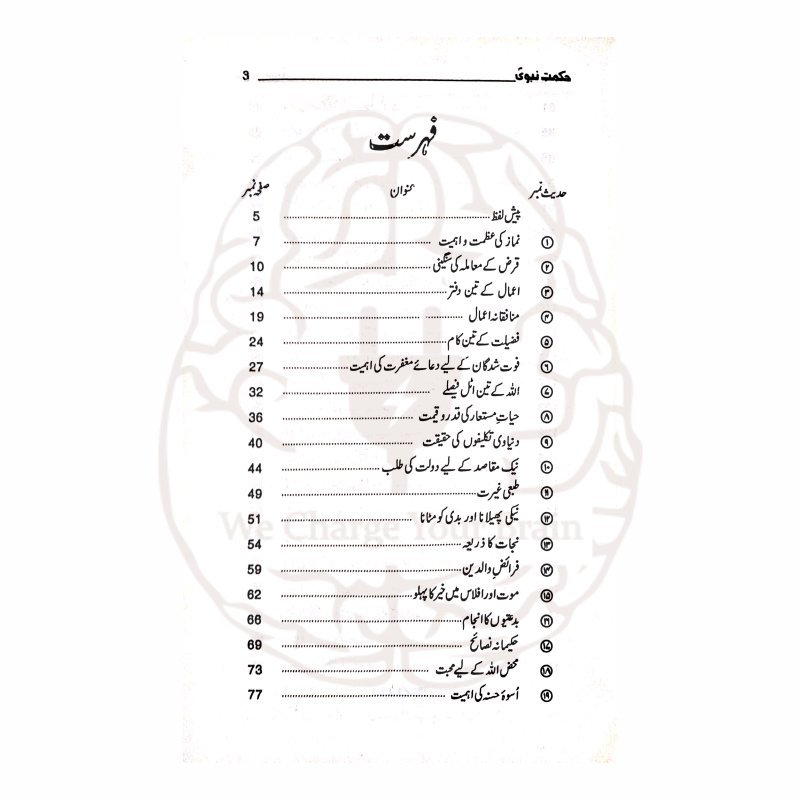 حکمت نبویؐ 3
فہرست
حدیث نمبر عنوان صفحہ نمبر
پیش لفظ 5
۱ نماز کی عظمت و اہمیت 7
۲ قرض کے معاملہ کی سنگینی 10
۳ اعمال کے تین دفتر 14
۴ منافقانہ اعمال 19
۵ فضیلت کے تین کام 24
۶ فوت شدگان کے لیے دعائے مغفرت کی اہمیت 27
۷ اللہ کے تین اٹل فیصلے 32
۸ حیاتِ مستعار کی قدر و قیمت 36
۹ دنیاوی تکلیفوں کی حقیقت 40
۱۰ نیک مقاصد کے لیے دولت کی طلب 44
۱۱ طبعی غیرت 49
۱۲ نیکی پھیلانا اور بدی کو مٹانا 51
We Charge Your Brain
۱۳ نجات کا ذریعہ 54
۱۴ فرائضِ والدین 59
۱۵ موت اور افلاس میں خیر کا پہلو 62
۱۶ بدعتیوں کا انجام 66
۱۷ حکیمانہ نصائح 69
۱۸ محض اللہ کے لیے محبت 73
۱۹ اُسوۂ حسنہ کی اہمیت 77